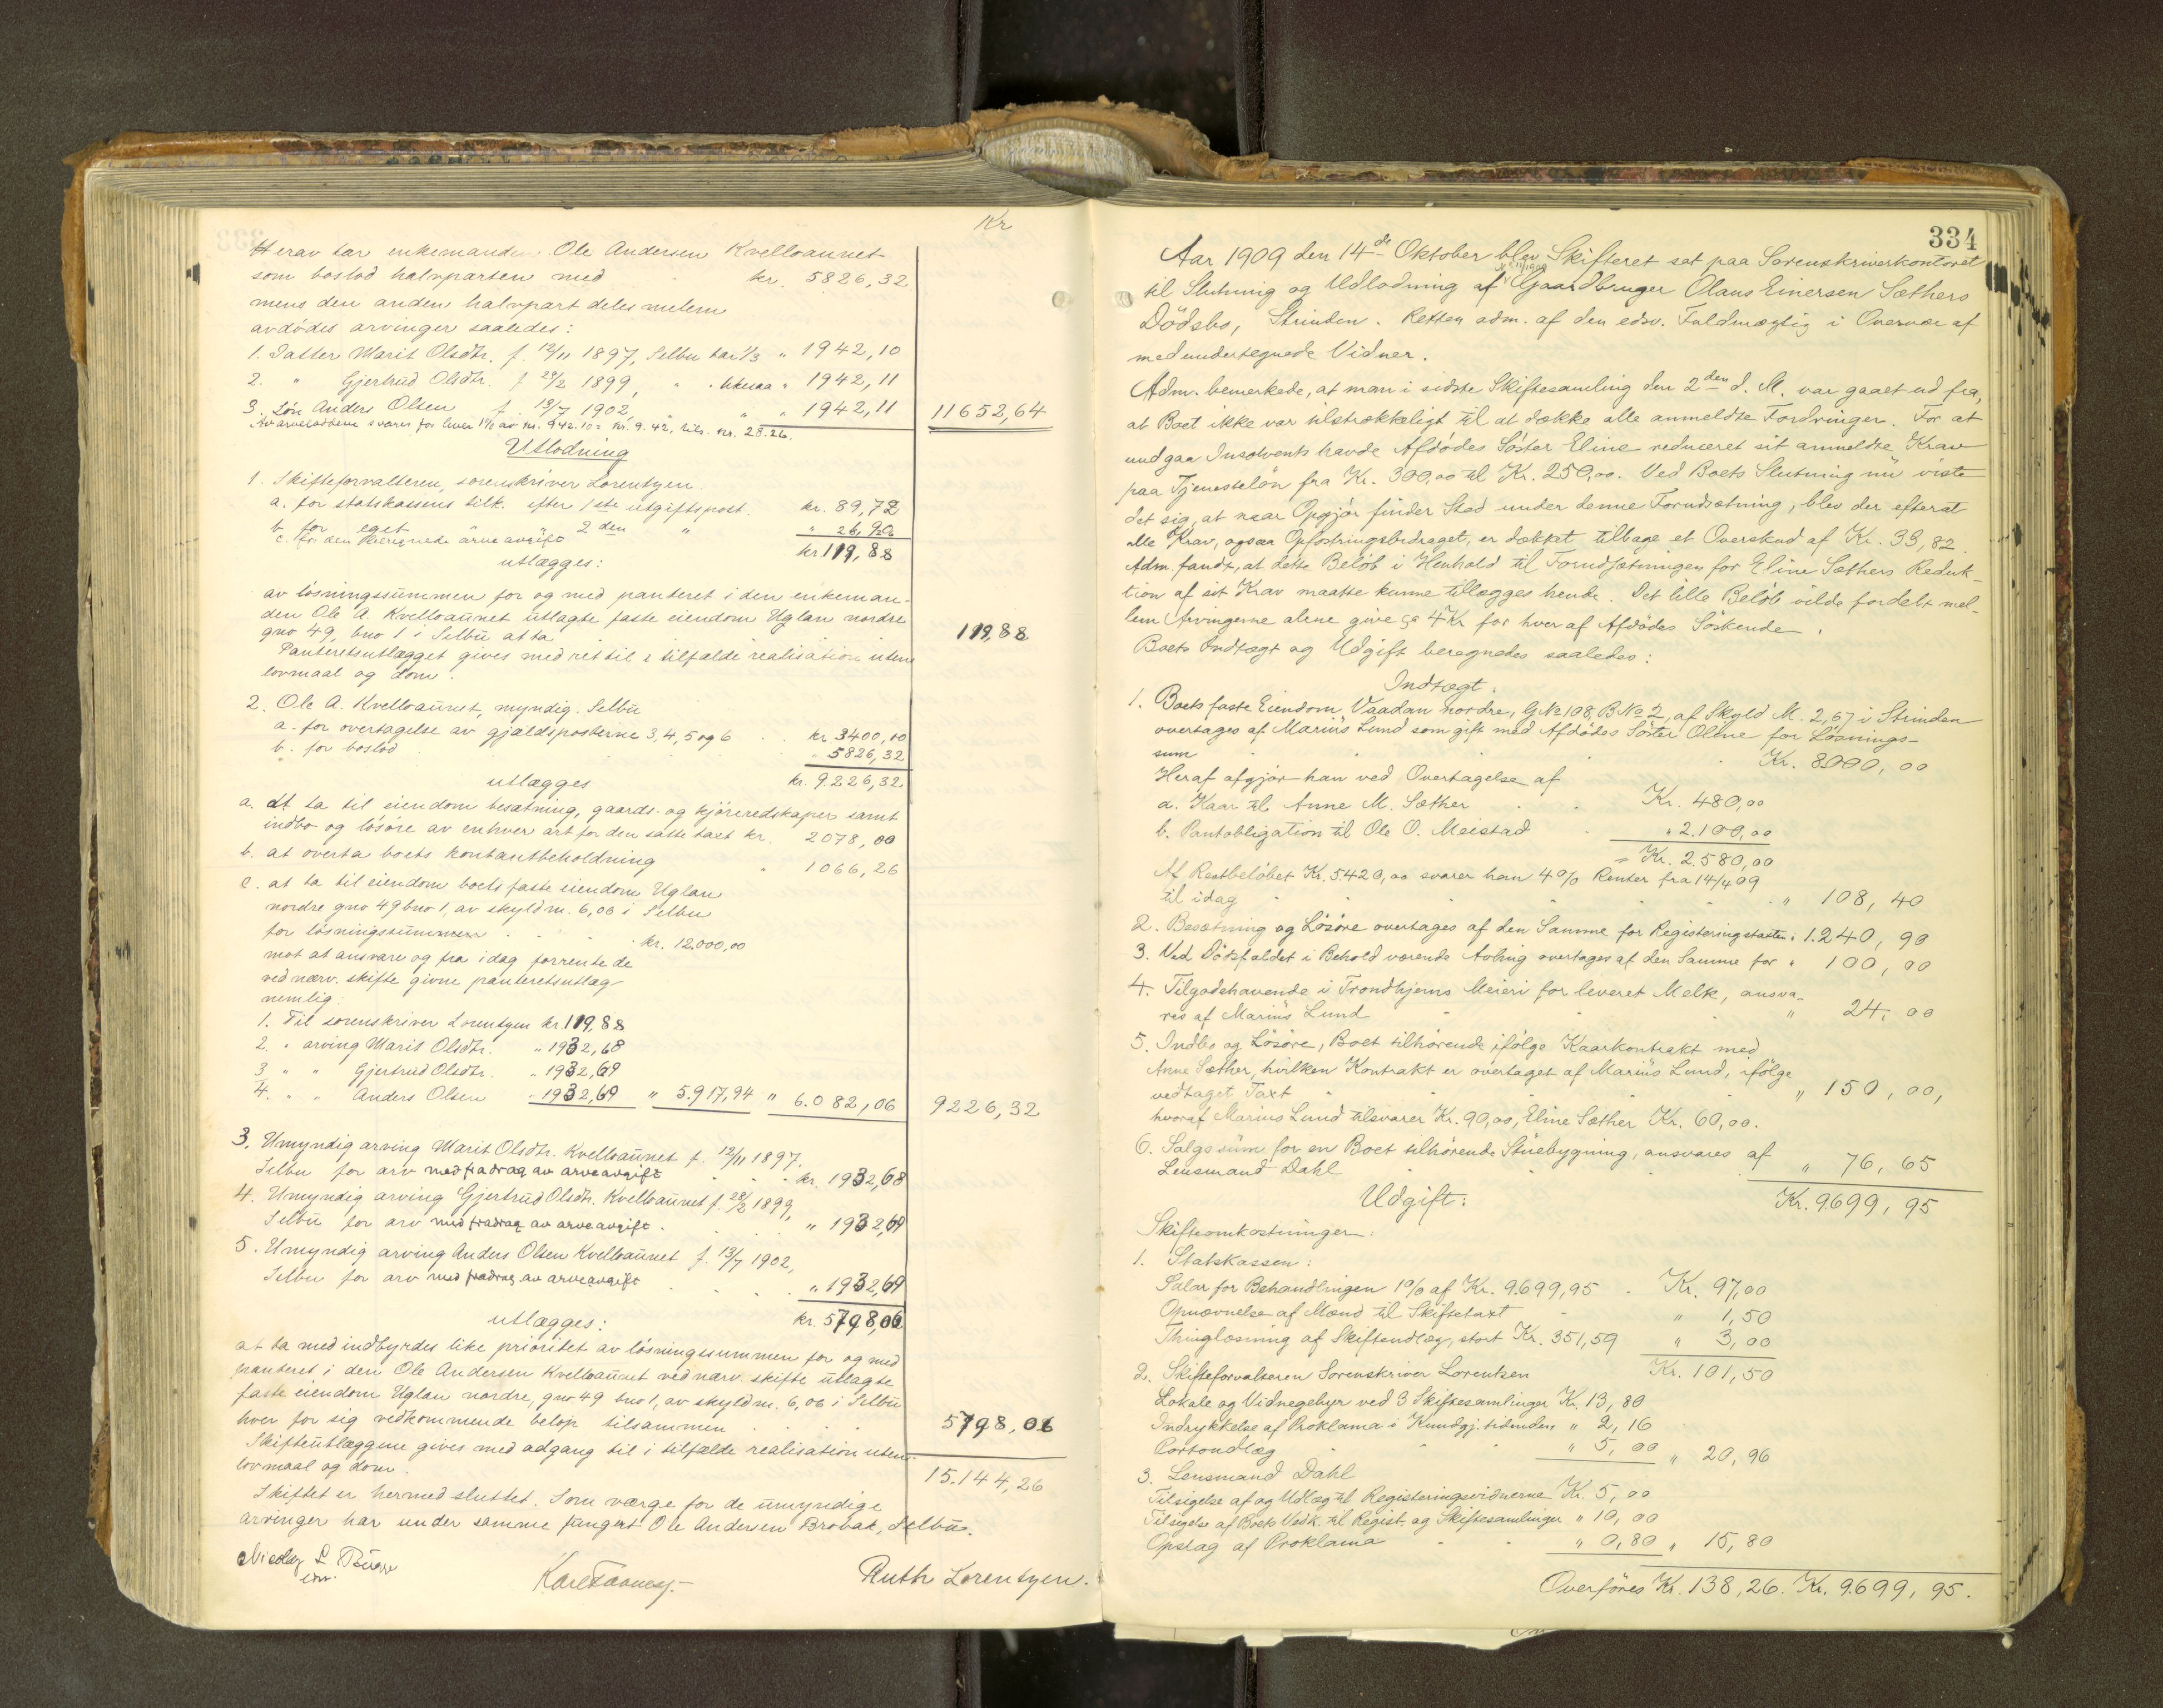 Kr
Herav tar enkemanden Ole Andersen Kvelloaunet
som boslod halvparten med kr. 5826,32
mens den anden halvpart deles mellem
avdödes arvinger saaledes:
1. Datter Marit Olsdtr. f. 12/11 1897, Selbu tar 1/3 " 1942,10
2. " Gjertrud Olsdtr. f 28/2 1899, " likesaa " 1942,11
3. Sön Anders Olsen f. 13/7 1902, " " " 1942,11 11652,64
Av arveloddene svares for hver 1% av kr. 942.10 = kr. 9.42, tils. kr. 28.26.
Utlodning
1. Skifteforvalteren, sorenskriver Lorentzen.
a. for statskassens tilk. efter 1ste utgiftspost. kr. 89,72
b. for eget " " 2den " " 26,90
c. for den beregnede arveavgift
utlægges: kr 119,88
av lösningssummen for og med panteret i den enkeman-
den Ole A. Kvelloaunet utlagte faste eiendom Uglan nordre
gno 49, bno 1 i Selbu at ta 119,88
Panteretsutlægget gives med ret til i tilfælde realisation uten
lovmaal og dom.
2. Ole A. Kvelloaunet, myndig, Selbu
a. for overtagelse av gjældsposterne 3, 4, 5 og 6 kr. 3400,00
b. for boslod 5826,32
utlægges kr. 9226,32
a. at ta til eiendom besætning, gaards- og kjöreredskaper samt
indbo og lösöre av enhver art for den satte taxt kr. 2078,00
b. at overta boets kontantbeholdning " 1066,26
c. at ta til eiendom boets faste eiendom Uglan
nordre gno 49 bno 1, av skyld m. 6,06 i Selbu
for lösningssummen kr. 12.000,00
mot at ansvare og fra idag forrente de
ved nærv. skifte givne panteretsutlæg
nemlig:
1. Til sorenskriver Lorentzen kr. 119,88
2. " arving Marit Olsdtr. " 1932,68
3 " " Gjertrud Olsdtr. " 1932,69
4. " " Anders Olsen " 1932,69 " 5.917,94 " 6.082,06 9226,32
3. Umyndig arving Marit Olsdtr. Kvelloaunet f. 12/11 1897.
Selbu for arv med fradrag av arveavgift kr. 1932,68
4. Umyndig arving Gjertrud Olsdtr. Kvelloaunet f. 28/2 1899,
Selbu for arv med fradrag av arveavgift. " 1932,69
5. Umyndig arving Anders Olsen Kvelloaunet f. 13/7 1902,
Selbu for arv med fradrag av arveavgift " 1932,69
utlægges: kr. 5798,06
at ta med indbyrdes like prioritet av lösningssummen for og med
panteret i den Ole Andersen Kvelloaunet ved nærv. skifte utlagte
faste eiendom Uglan nordre, gno 49 bno 1, av skyld m. 6,06 i Selbu
hver for sig vedkommende belöp tilsammen 5798,06
Skifteutlæggene gives med adgang til i tilfælde realisation uten
lovmaal og dom. 15.144,26
Skiftet er hermed sluttet. Som værge for de umyndige
arvinger har under samme fungert Ole Andersen Brobak, Selbu.
Nicolay L.
Ruth Lorentzen.
334
Aar 1909 den 14de Oktober blev Skifteret sat paa Sorenskriverkontoret
til Slutning og Udlodning af Gaardbruger Olaus Einersen Sæthers
Dödsbo, Strinden. Retten adm. af den edsv. Fuldmægtig i Overvær af
medundertegnede Vidner.
Adm. bemerkede, at man i sidste Skiftesamling den 2den d. M. var gaaet ud fra,
at Boet ikke var tilstrækkeligt til at dække alle anmeldte Fordringer. For at
undgaa Insolvents havde Afdödes Söster Eline reduceret sit anmeldte Krav
paa Tjenestelön fra Kr. 300,00 til Kr. 250,00. Ved Boets Slutning nu viste
det sig, at naar Opgjör finder Sted under denne Forudsætning, blev der efterat
alle Krav, ogsaa Opfostringsbidraget, er dækket tilbage et Overskud af Kr. 33,82.
Adm. fandt, at dette Belöb i Henhold til Forudsætningen for Eline Sæthers Reduk-
tion af sit Krav maatte kunne tillægges hende. Det lille Belöb vilde fordelt mel-
lem Arvingerne alene give ca 4 Kr for hver af Afdödes Söskende.
Boets Indtægt og Udgift beregnedes saaledes:
Indtægt.
1. Boets faste Eiendom Vaadan nordre, GNo 108, BNo 2, af Skyld M. 2,67 i Strinden
overtages af Marius Lund som gift med Afdödes Söster Oline for Lösnings-
sum Kr. 8000,00
Heraf afgjör han ved Overtagelse af
a. Kaar til Anne M. Sæther Kr. 480,00
b. Pantobligation til Ole O. Meistad " 2.100,00
= Kr. 2.580,00
Af Restbelöbet Kr. 5.420,00 svarer han 4% Renter fra 14/4 09
til idag " 108,40
2. Besætning og Lösöre overtages af den Samme for Registeringstaxten " 1.240,90
3. Ved Dödsfaldet i Behold værende Avling overtages af den Samme for " 100,00
4. Tilgodehavende i Trondhjems Meieri for leveret Melk, ansva-
res af Marius Lund " 24,00
5. Indbo og Lösöre, Boet tilhörende ifölge Kaarkontrakt med
Anne Sæther, hvilken Kontrakt er overtaget af Marius Lund, ifölge
vedtaget Taxt " 150,00,
hvoraf Marius Lund tilsvarer Kr. 90,00, Eline Sæther Kr. 60,00.
6. Salgssum for en Boet tilhörende Stuebygning, ansvares af
Lensmand Dahl " 76,65
Kr. 9699,95
Udgift:
Skifteomkostninger:
1. Statskassen:
Salær for Behandlingen 1% af Kr. 9.699,95 Kr. 97,00
Opnævnelse af Mænd til Skiftetaxt " 1,50
Thinglæsning af Skifteudlæg, stort Kr. 351,59 " 3,00
Kr. 101,50
2. Skifteforvalteren Sorenskriver Lorentsen
Lokale og Vidnegebyr ved 3 Skiftesamlinger Kr. 13,80
Indrykkelse af Proklama i Kundgj. tidenden " 2,16
Portoudlæg " 5,00 " 20,96
3. Lensmand Dahl
Tilsigelse af og Udlæg til Registeringsvidnerne Kr. 5,00
Tilsigelse af Boets Vedk. til Regist. og Skiftesamlinger " 10,00
Opslag af Proklama " 0,80 " 15,80
Overföres Kr. 138,26. Kr. 9.699,95.